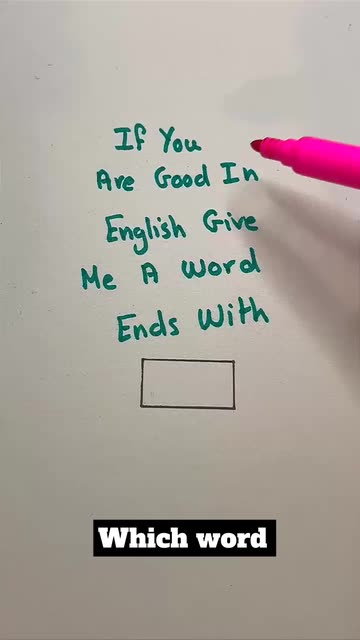 If You
Are Good In
English Give
Me A Word
Ends With
Which word